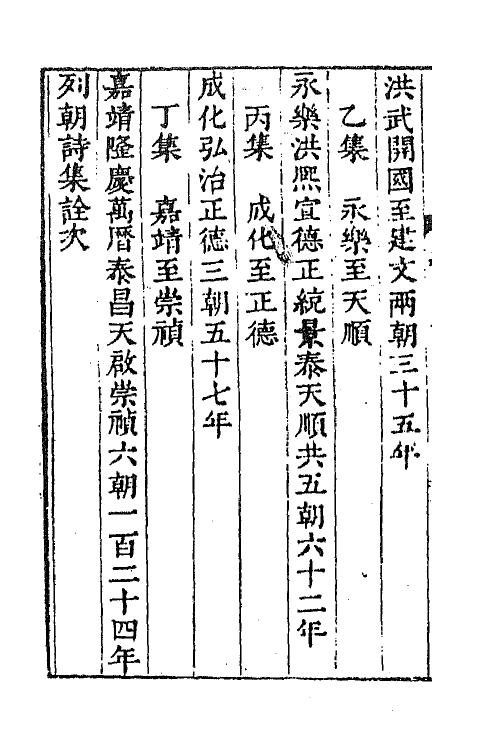 洪武開國至建文兩朝三十五年
乙集　永樂至天順
永樂洪熙宣德正統景泰天順共五朝六十二年
丙集　成化至正德
成化弘治正德三朝五十七年
丁集　嘉靖至崇禎
嘉靖隆慶萬曆泰昌天啟崇禎六朝一百二十四年
列朝詩集詮次